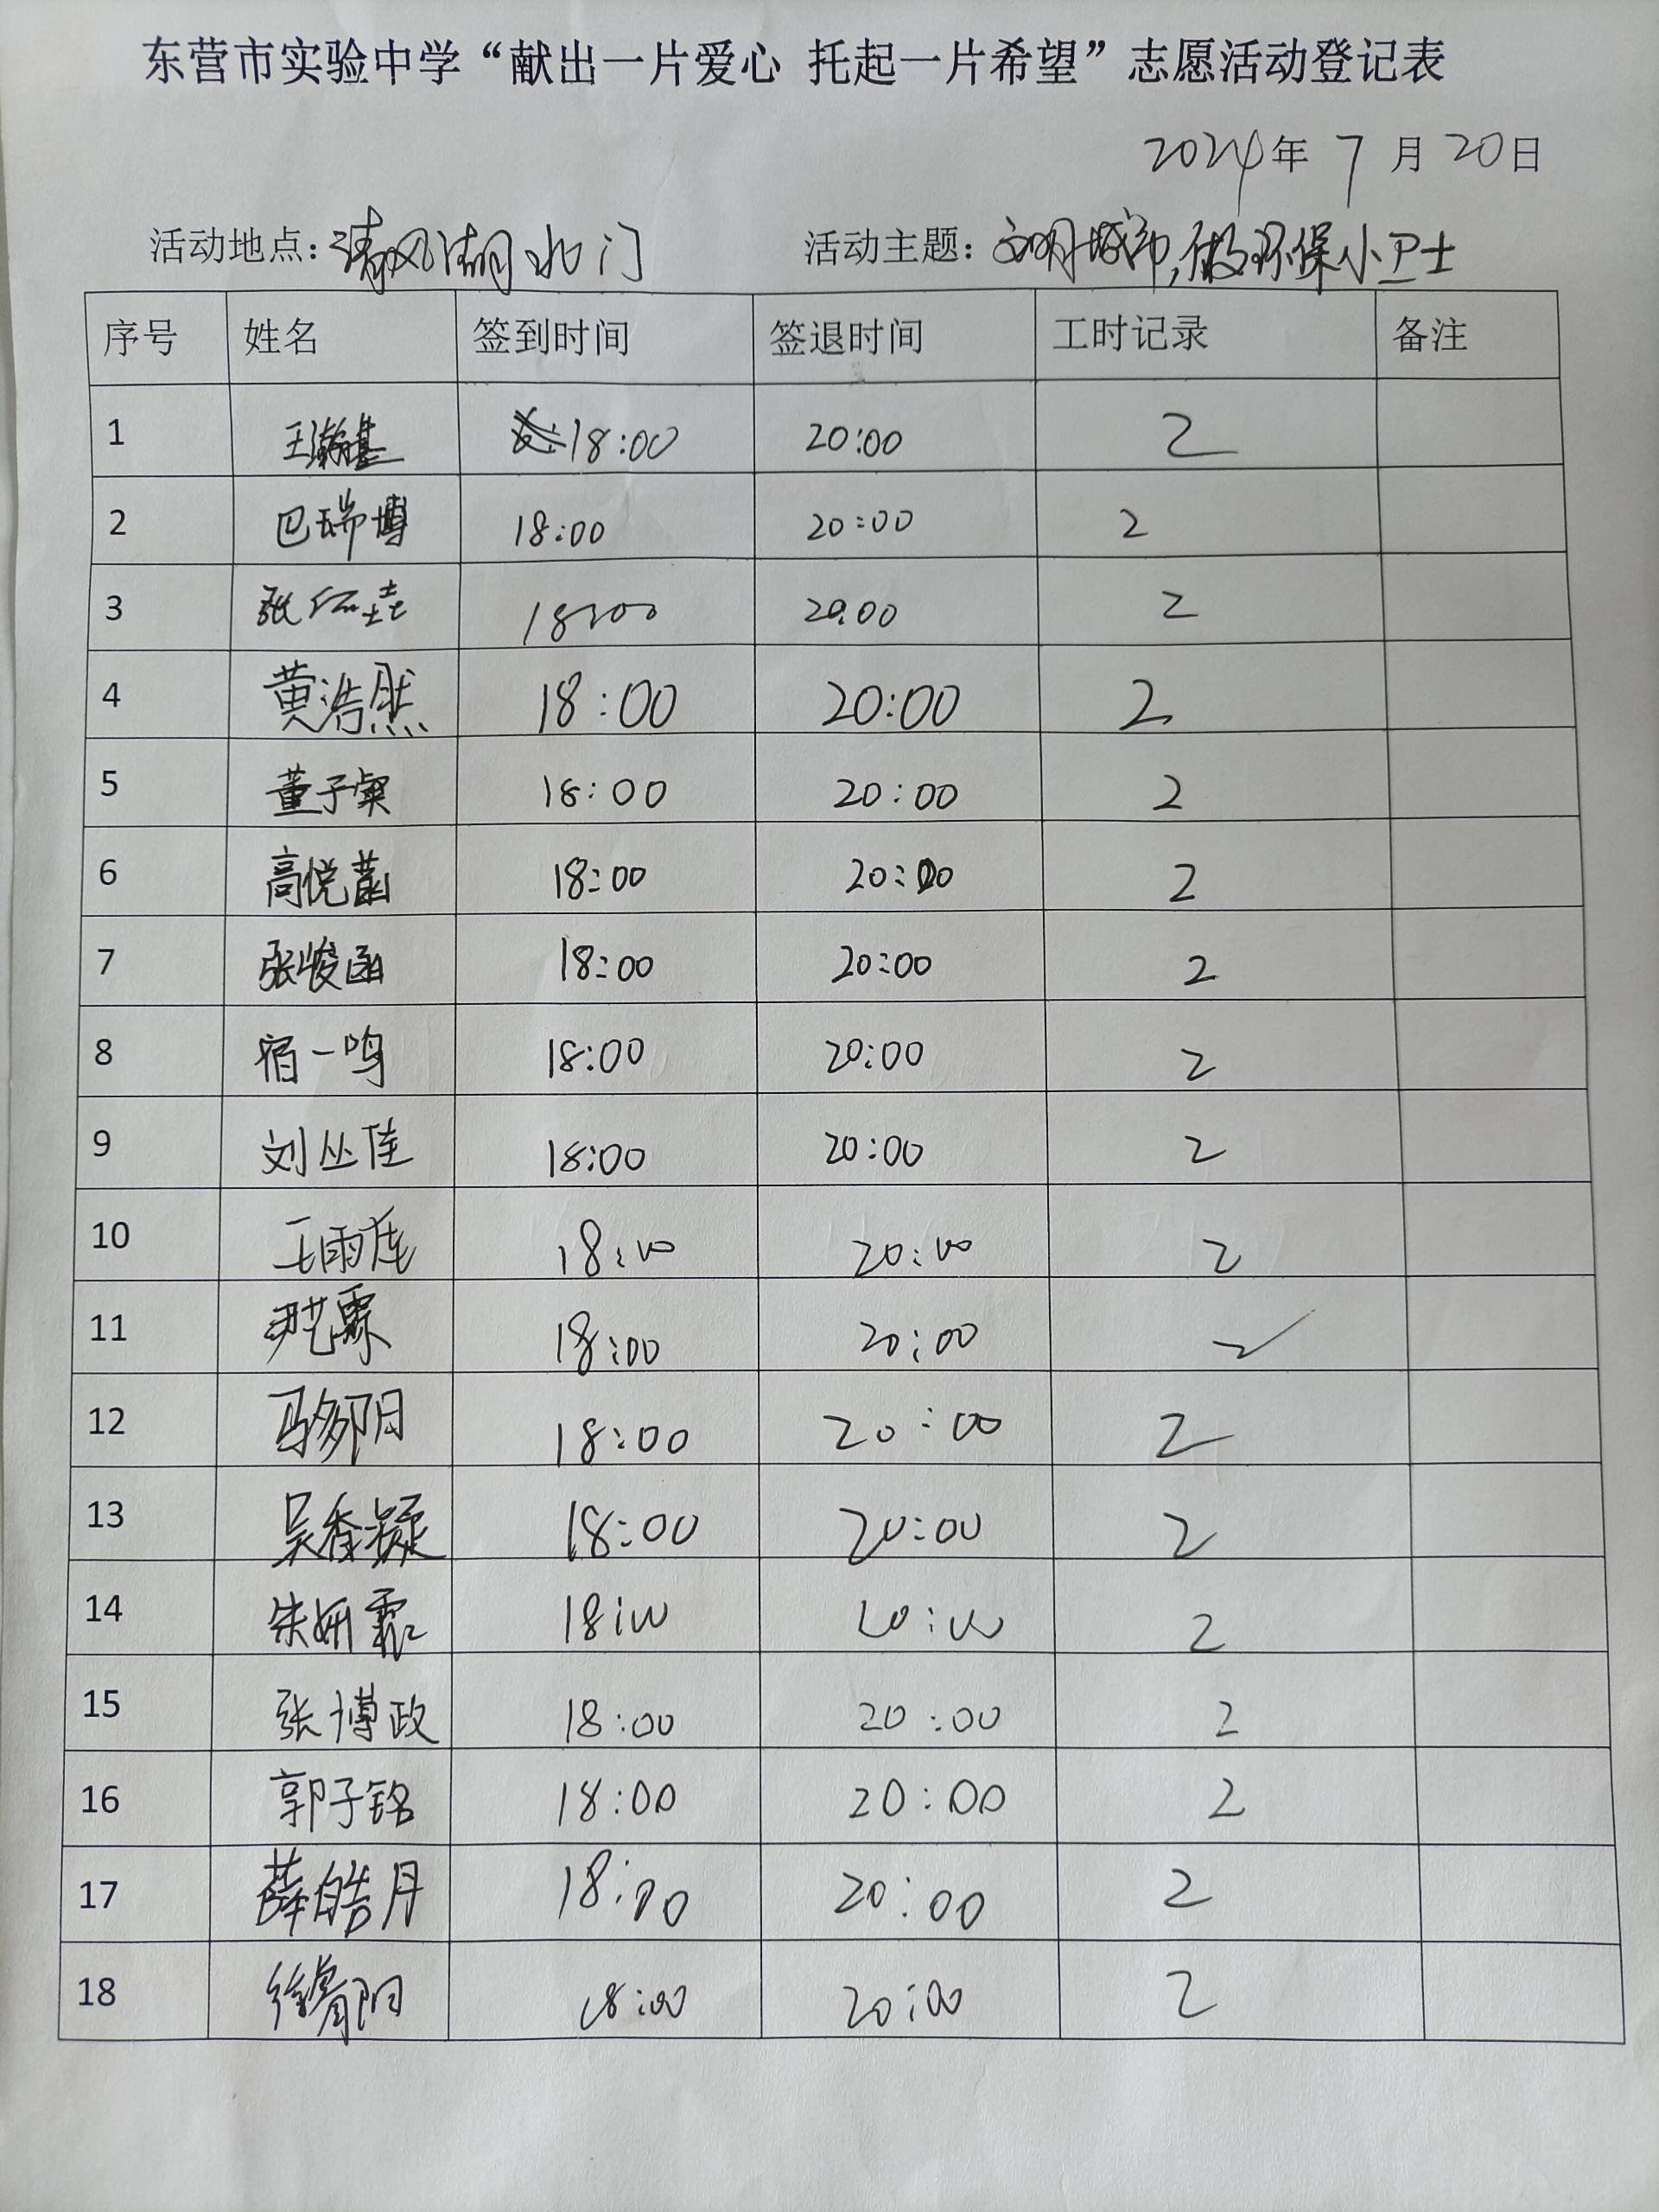 东营市实验中学“献出一片爱心 托起一片希望”志愿活动登记表
2024年 7 月 20日
活动地点：清风湖北门 活动主题：文明城市，做环保小卫士
序号 姓名 签到时间 签退时间 工时记录 备注
1 王瀚基 18:00 20:00 2
2 巴瑞博 18:00 20:00 2
3 张 18:00 20:00 2
4 黄浩然 18:00 20:00 2
5 董子粲 18:00 20:00 2
6 高悦菡 18:00 20:00 2
7 张峻函 18:00 20:00 2
8 宿一鸣 18:00 20:00 2
9 刘丛佳 18:00 20:00 2
10 王雨 18:00 20:00 2
11 尹艺霖 18:00 20:00 2
12 马多阳 18:00 20:00 2
13 吴香凝 18:00 20:00 2
14 朱妍霏 18:00 20:00 2
15 张博政 18:00 20:00 2
16 郭子铭 18:00 20:00 2
17 薛皓月 18:00 20:00 2
18 徐睿阳 18:00 20:00 2